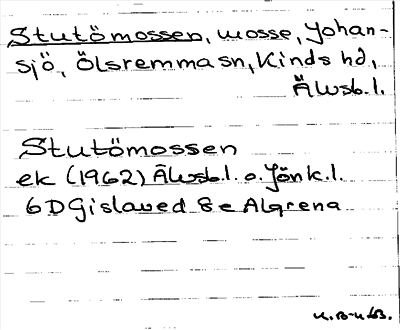 Stutömossen, mosse, Johan-
sjö, Ölsremma sn, Kinds hd,
Älvsb.l.
Stutömossen
ek (1962) Älvsb.l. o. Jönk.l.
6D Gislaved 8e Algrena